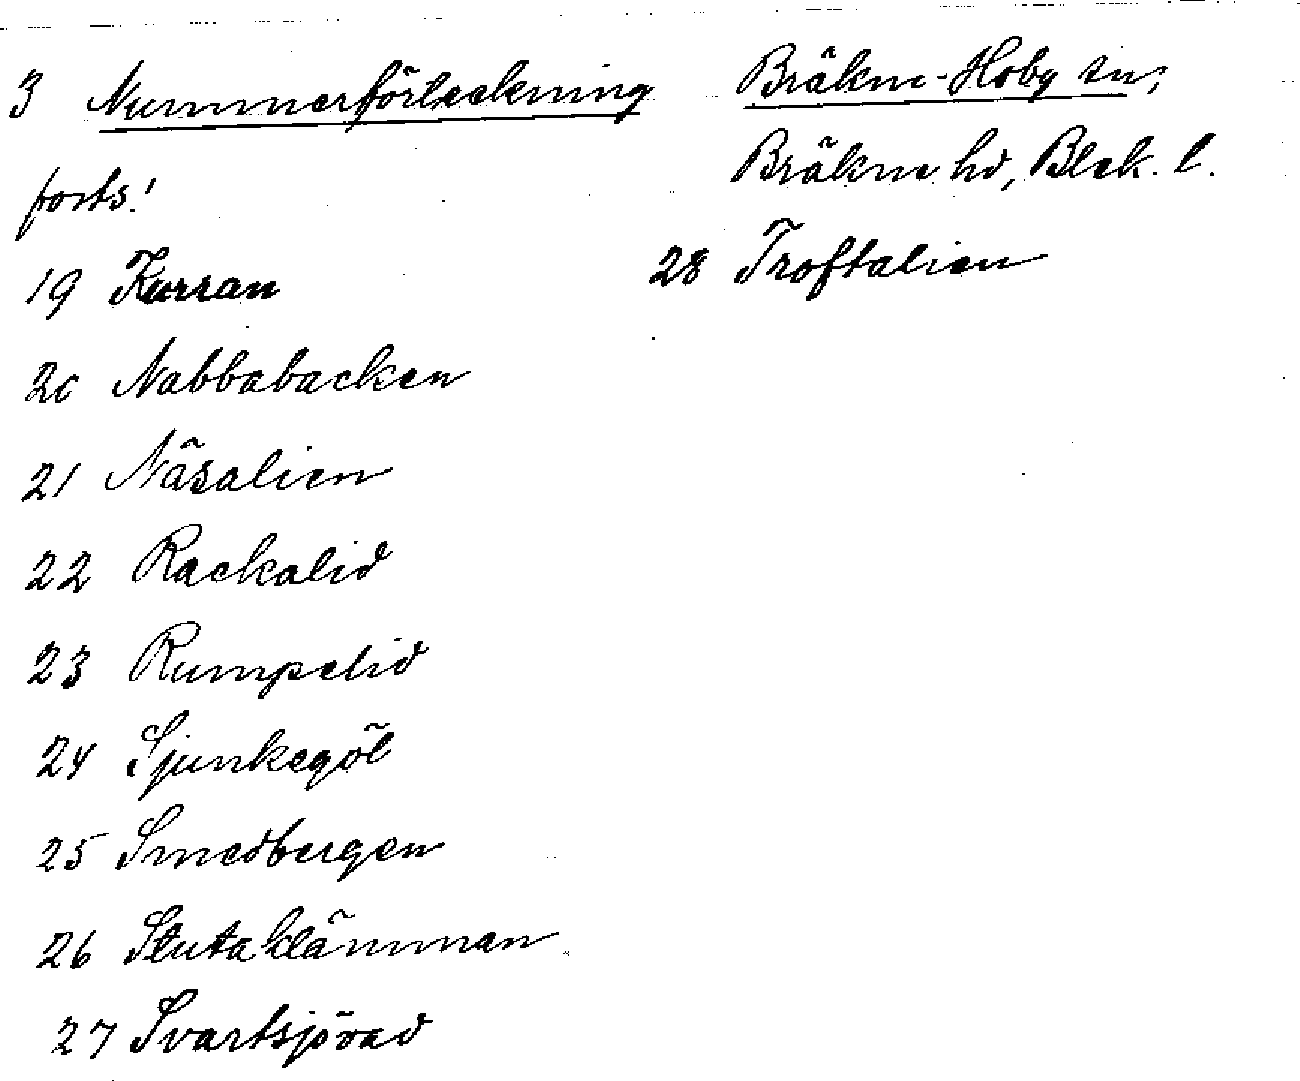 3 Nummerförteckning
forts.!
19 Kurran
20 Nabbabacken
21 Näsalien
22 Rackalid
23 Rumpelid
24 Sjunkegöl
25 Smedbergen
26 Stutaklämman
27 Svartsjövad
Bräkne-Hoby sn;
Bräkne hd, Blek. l.
28 Troftalien